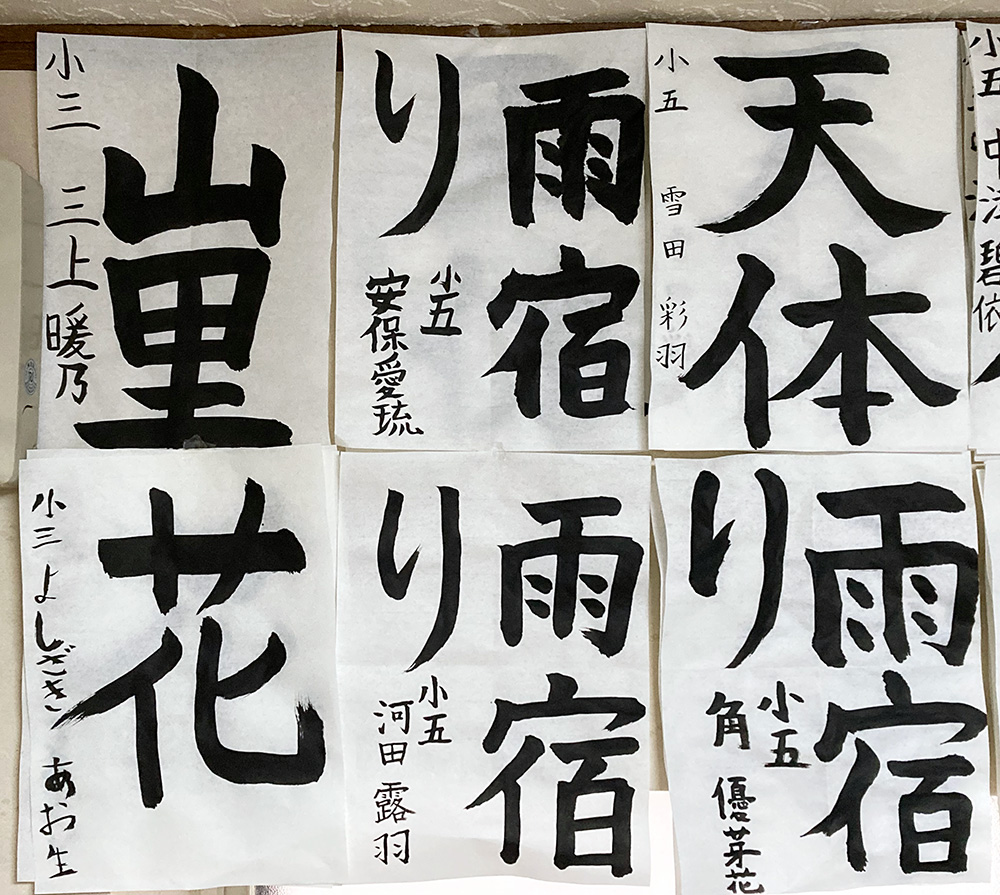 山里
小三 三上暖乃
雨宿
り
小五
安保愛琉
天体
小五 雪田 彩羽
小五
碧依
花
小三 よしざき あお生
雨宿
り
小五
河田 露羽
雨宿
り
小五
角 優芽花